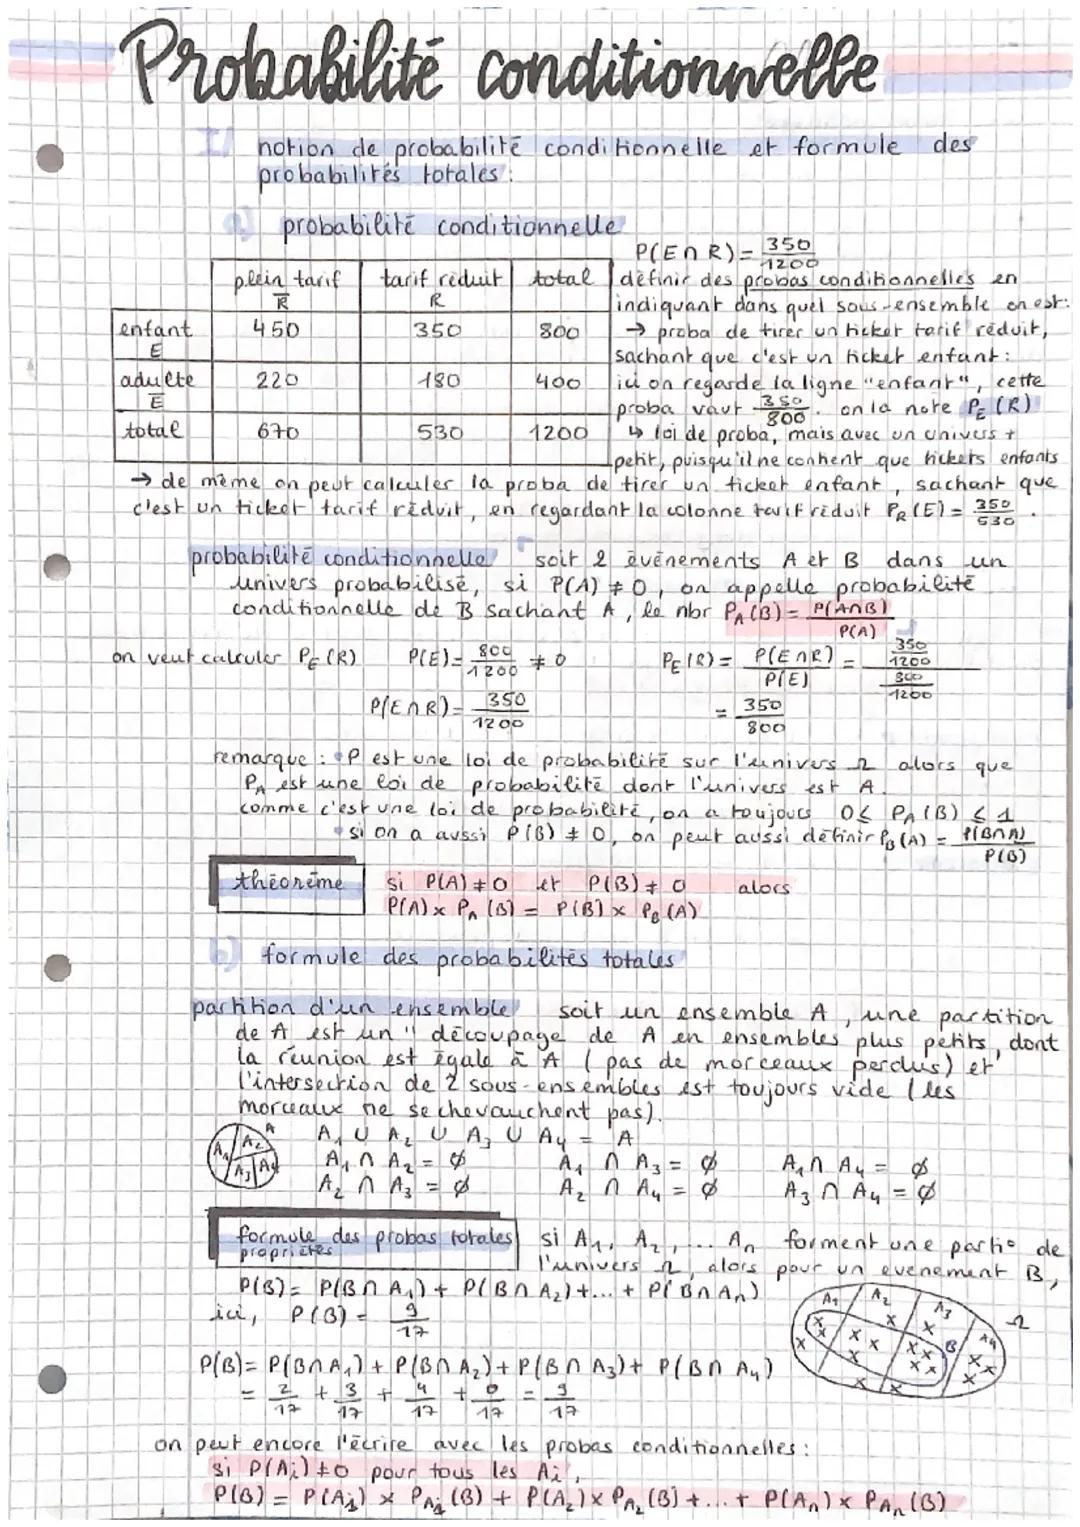 Probabilité conditionnelle
I/ notion de probabilité conditionnelle et formule des
probabilités totales :
a) probabilité conditionnelle
P(E∩R) = 350/1200
plein tarif R̅ | tarif réduit R | total
enfant E | 450 | 350 | 800
aduelte E̅ | 220 | 180 | 400
total | 670 | 530 | 1200
définir des probas conditionnelles en
indiquant dans quel sous-ensemble on est:
→ proba de tirer un ticket tarif réduit,
sachant que c'est un ticket enfant :
ici on regarde la ligne "enfant", cette
proba vaut 350/800. on la note P_E(R)
↳ loi de proba, mais avec un univers +
petit, puisqu'il ne contient que tickets enfants
→ de même on peut calculer la proba de tirer un ticket enfant, sachant que
c'est un ticket tarif réduit, en regardant la colonne tarif réduit P_R(E) = 350/530.
probabilité conditionnelle soit 2 événements A et B dans un
univers probabilisé, si P(A) ≠ 0, on appelle probabilité
conditionnelle de B sachant A, le nbr P_A(B) = P(A∩B)/P(A)
on veut calculer P_E(R) P(E) = 800/1200 ≠ 0 P_E(R) = P(E∩R)/P(E) = (350/1200)/(800/1200)
P(E∩R) = 350/1200 = 350/800
remarque : • P est une loi de probabilité sur l'univers Ω alors que
P_A est une loi de probabilité dont l'univers est A.
comme c'est une loi de probabilité, on a toujours 0 ≤ P_A(B) ≤ 1
• si on a aussi P(B) ≠ 0, on peut aussi définir P_B(A) = P(B∩A)/P(B)
théorème si P(A) ≠ 0 et P(B) ≠ 0 alors
P(A) × P_A(B) = P(B) × P_B(A)
b) formule des probabilités totales
partition d'un ensemble soit un ensemble A, une partition
de A est un " découpage de A en ensembles plus petits, dont
la réunion est égale à A (pas de morceaux perdus) et
l'intersection de 2 sous-ensembles est toujours vide (les
morceaux ne se chevauchent pas).
A₁ A₂ A₃ A₄ A
A₁ ∪ A₂ ∪ A₃ ∪ A₄ = A
A₁ ∩ A₂ = ∅ A₁ ∩ A₃ = ∅ A₁ ∩ A₄ = ∅
A₂ ∩ A₃ = ∅ A₂ ∩ A₄ = ∅ A₃ ∩ A₄ = ∅
formule des probas totales si A₁, A₂, ... Aₙ forment une partie de
propriétés l'univers Ω, alors pour un evenement B,
P(B) = P(B∩A₁) + P(B∩A₂) + ... + P(B∩Aₙ)
ici, P(B) = 9/17
A₁ A₂ A₃ A₄ B Ω
P(B) = P(B∩A₁) + P(B∩A₂) + P(B∩A₃) + P(B∩A₄)
= 2/17 + 3/17 + 4/17 + 0/17 = 9/17
on peut encore l'écrire avec les probas conditionnelles :
si P(Aᵢ) ≠ 0 pour tous les Aᵢ,
P(B) = P(A₁) × P_A₁(B) + P(A₂) × P_A₂(B) + ... + P(Aₙ) × P_Aₙ(B)